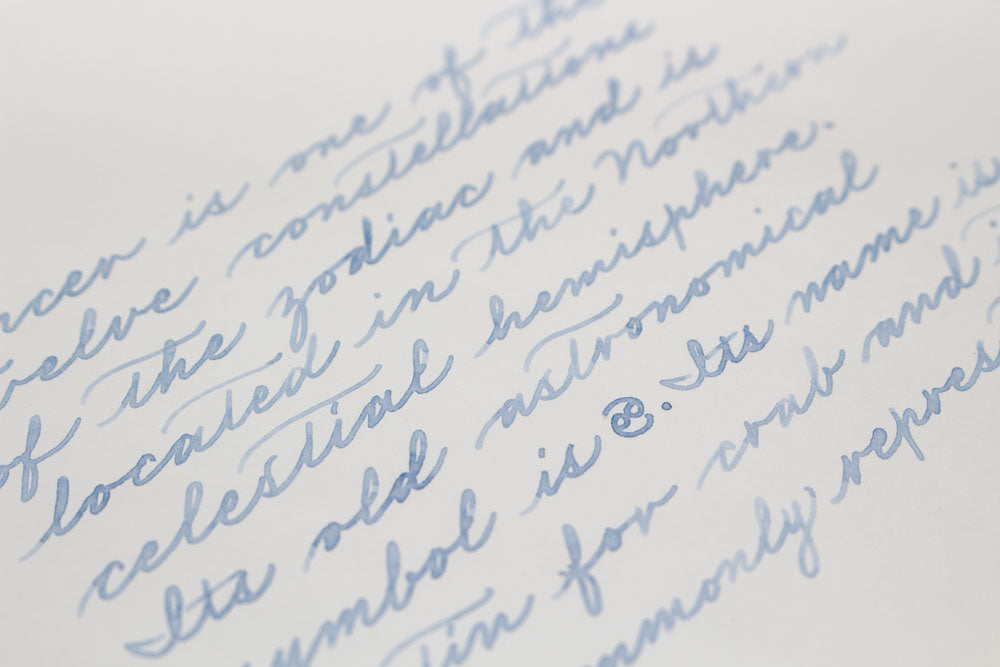 ncer is one of the
twelve constellations
of the zodiac and is
located in the Northern
celestial hemisphere.
Its old astronomical
symbol is ♋. Its name is
tin for crab and i
mmonly repres